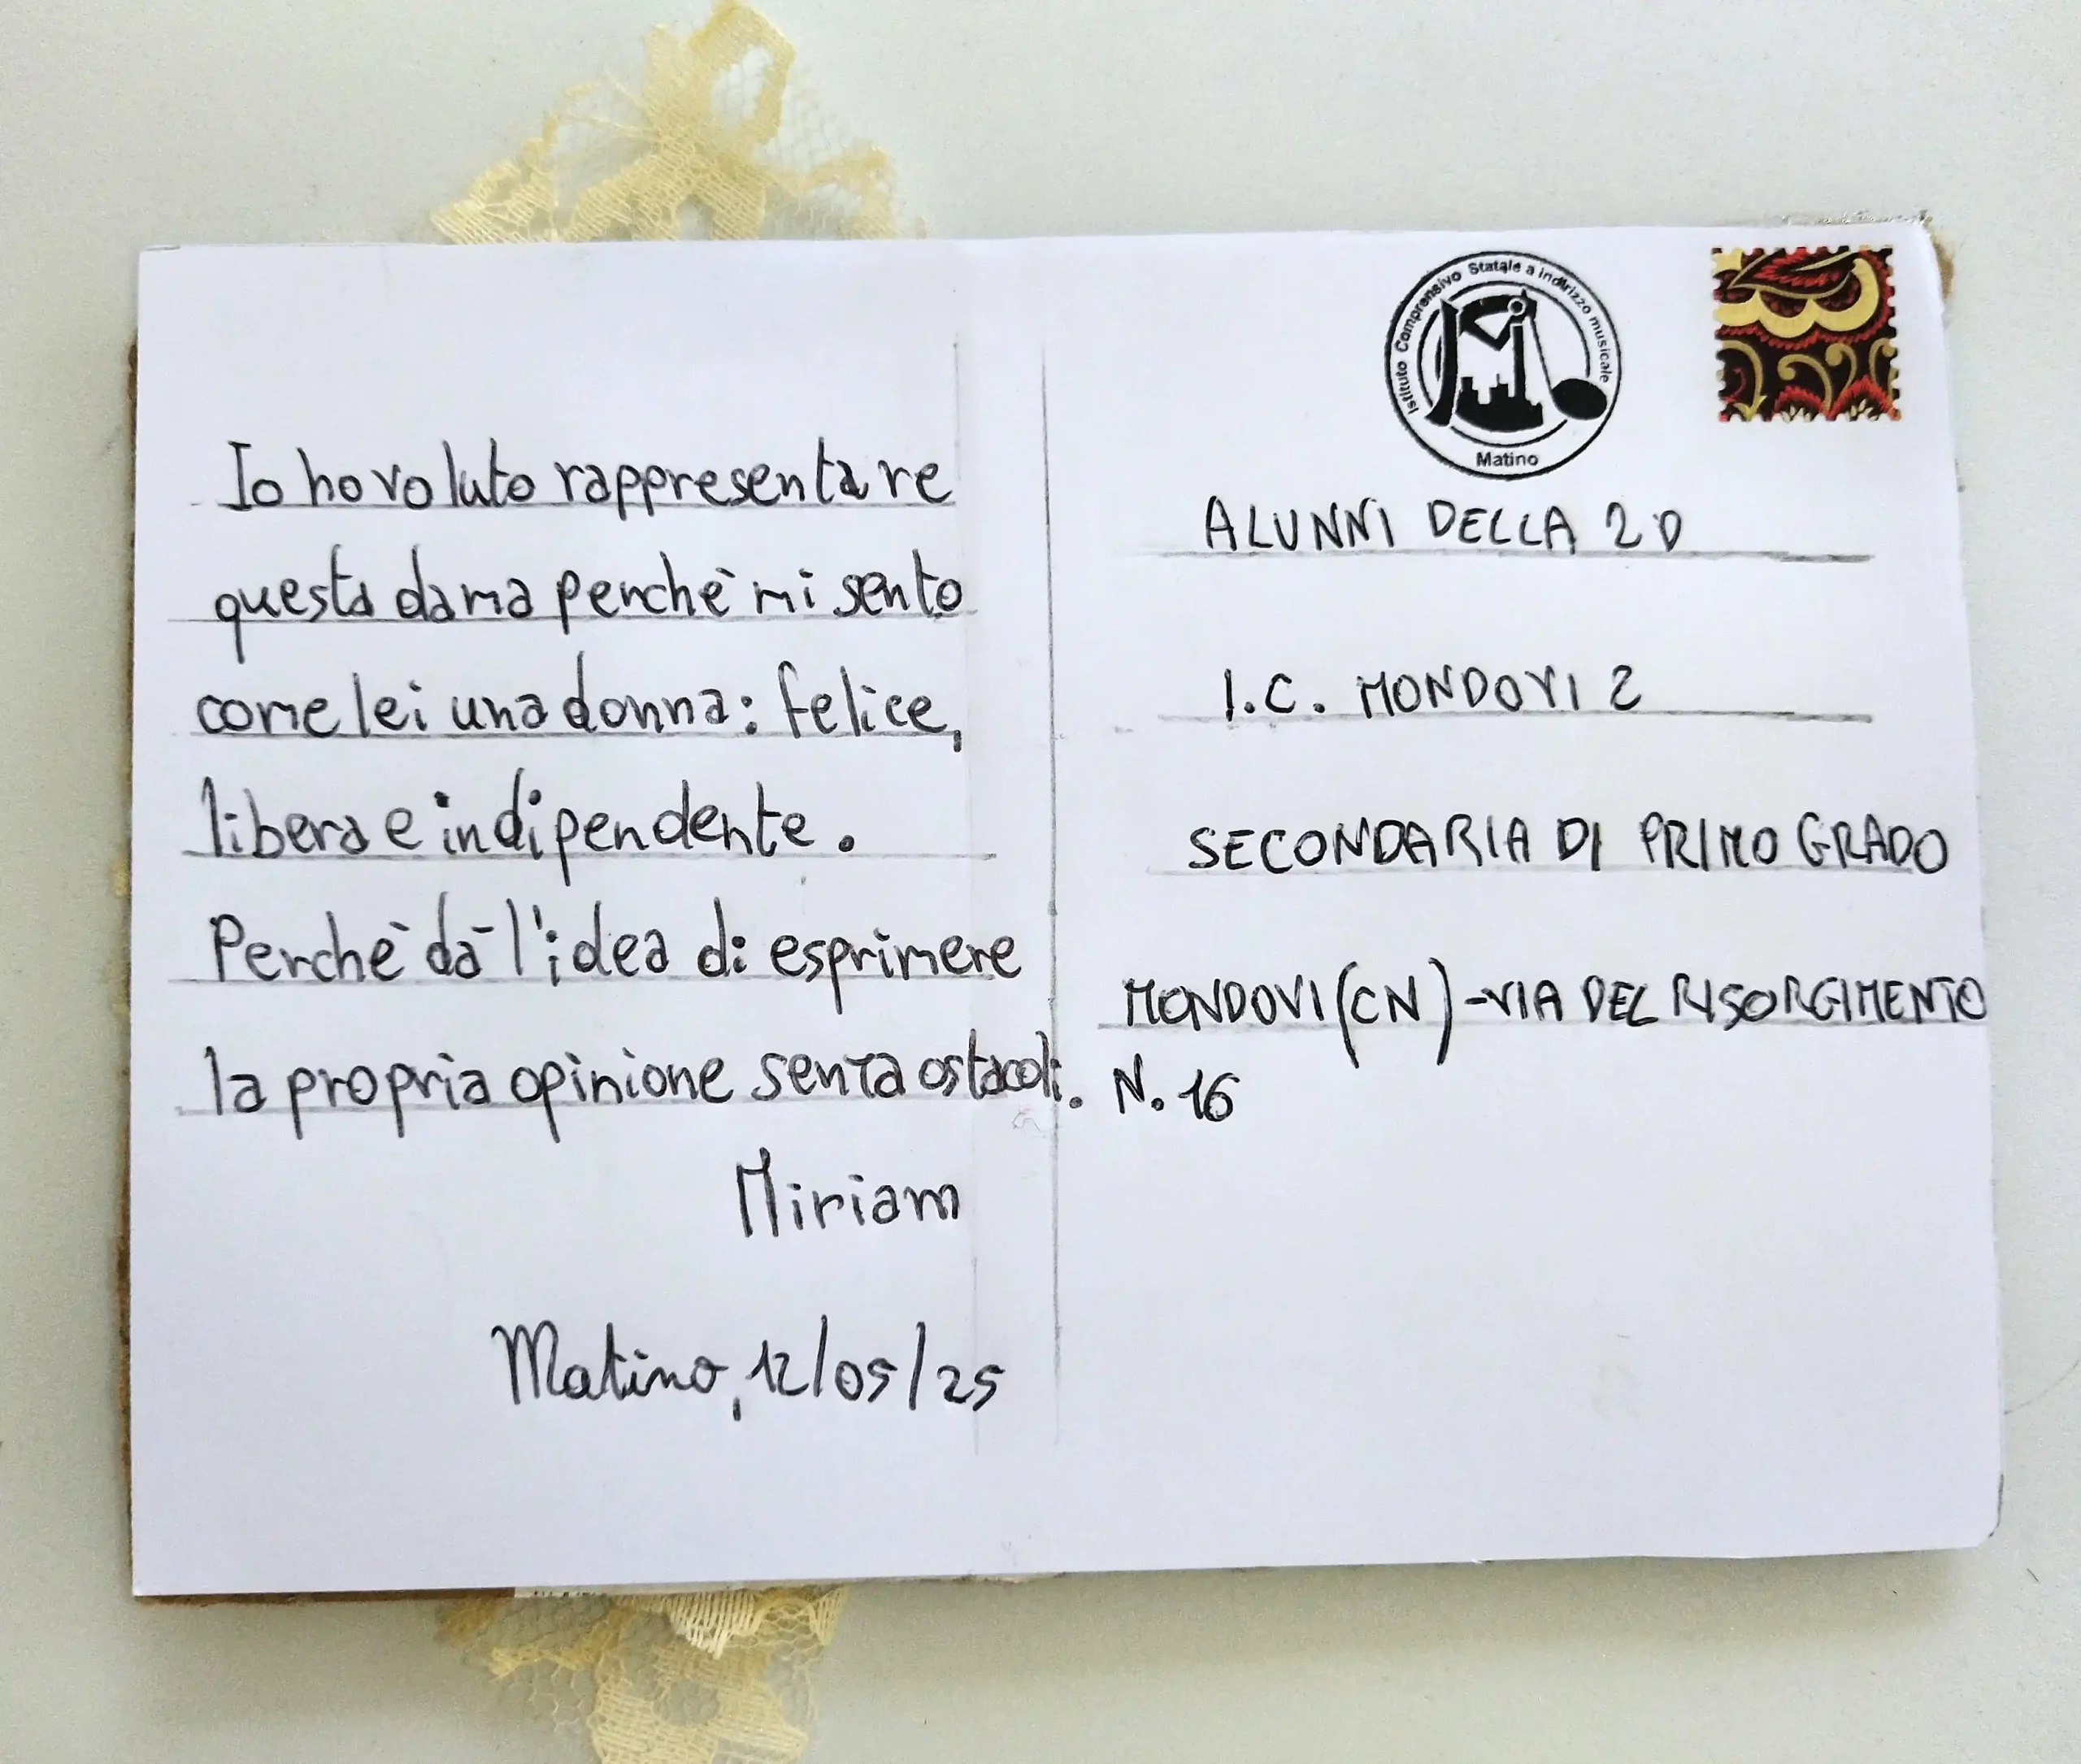 Io ho voluto rappresentare
questa dama perchè mi sento
come lei una donna: felice,
libera e indipendente.
Perchè dà l'idea di esprimere
la propria opinione senza ostacoli.
Miriam
Matino, 12/05/25
Istituto Comprensivo Statale a indirizzo musicale
Matino
ALUNNI DELLA 2D
I.C. MONDOVI 2
SECONDARIA DI PRIMO GRADO
MONDOVI (CN) - VIA DEL RISORGIMENTO
N. 16